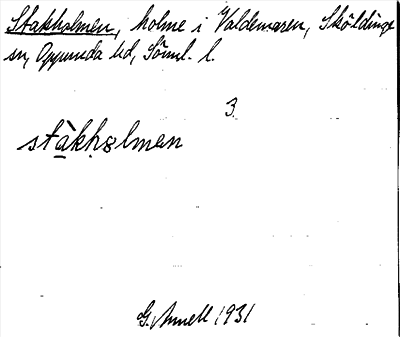 Stakholmen, holme i Valdemaren, Sköldinge
sn, Oppunda hd, Söml. l.
3
stàkhọlmen
G. Annell 1931